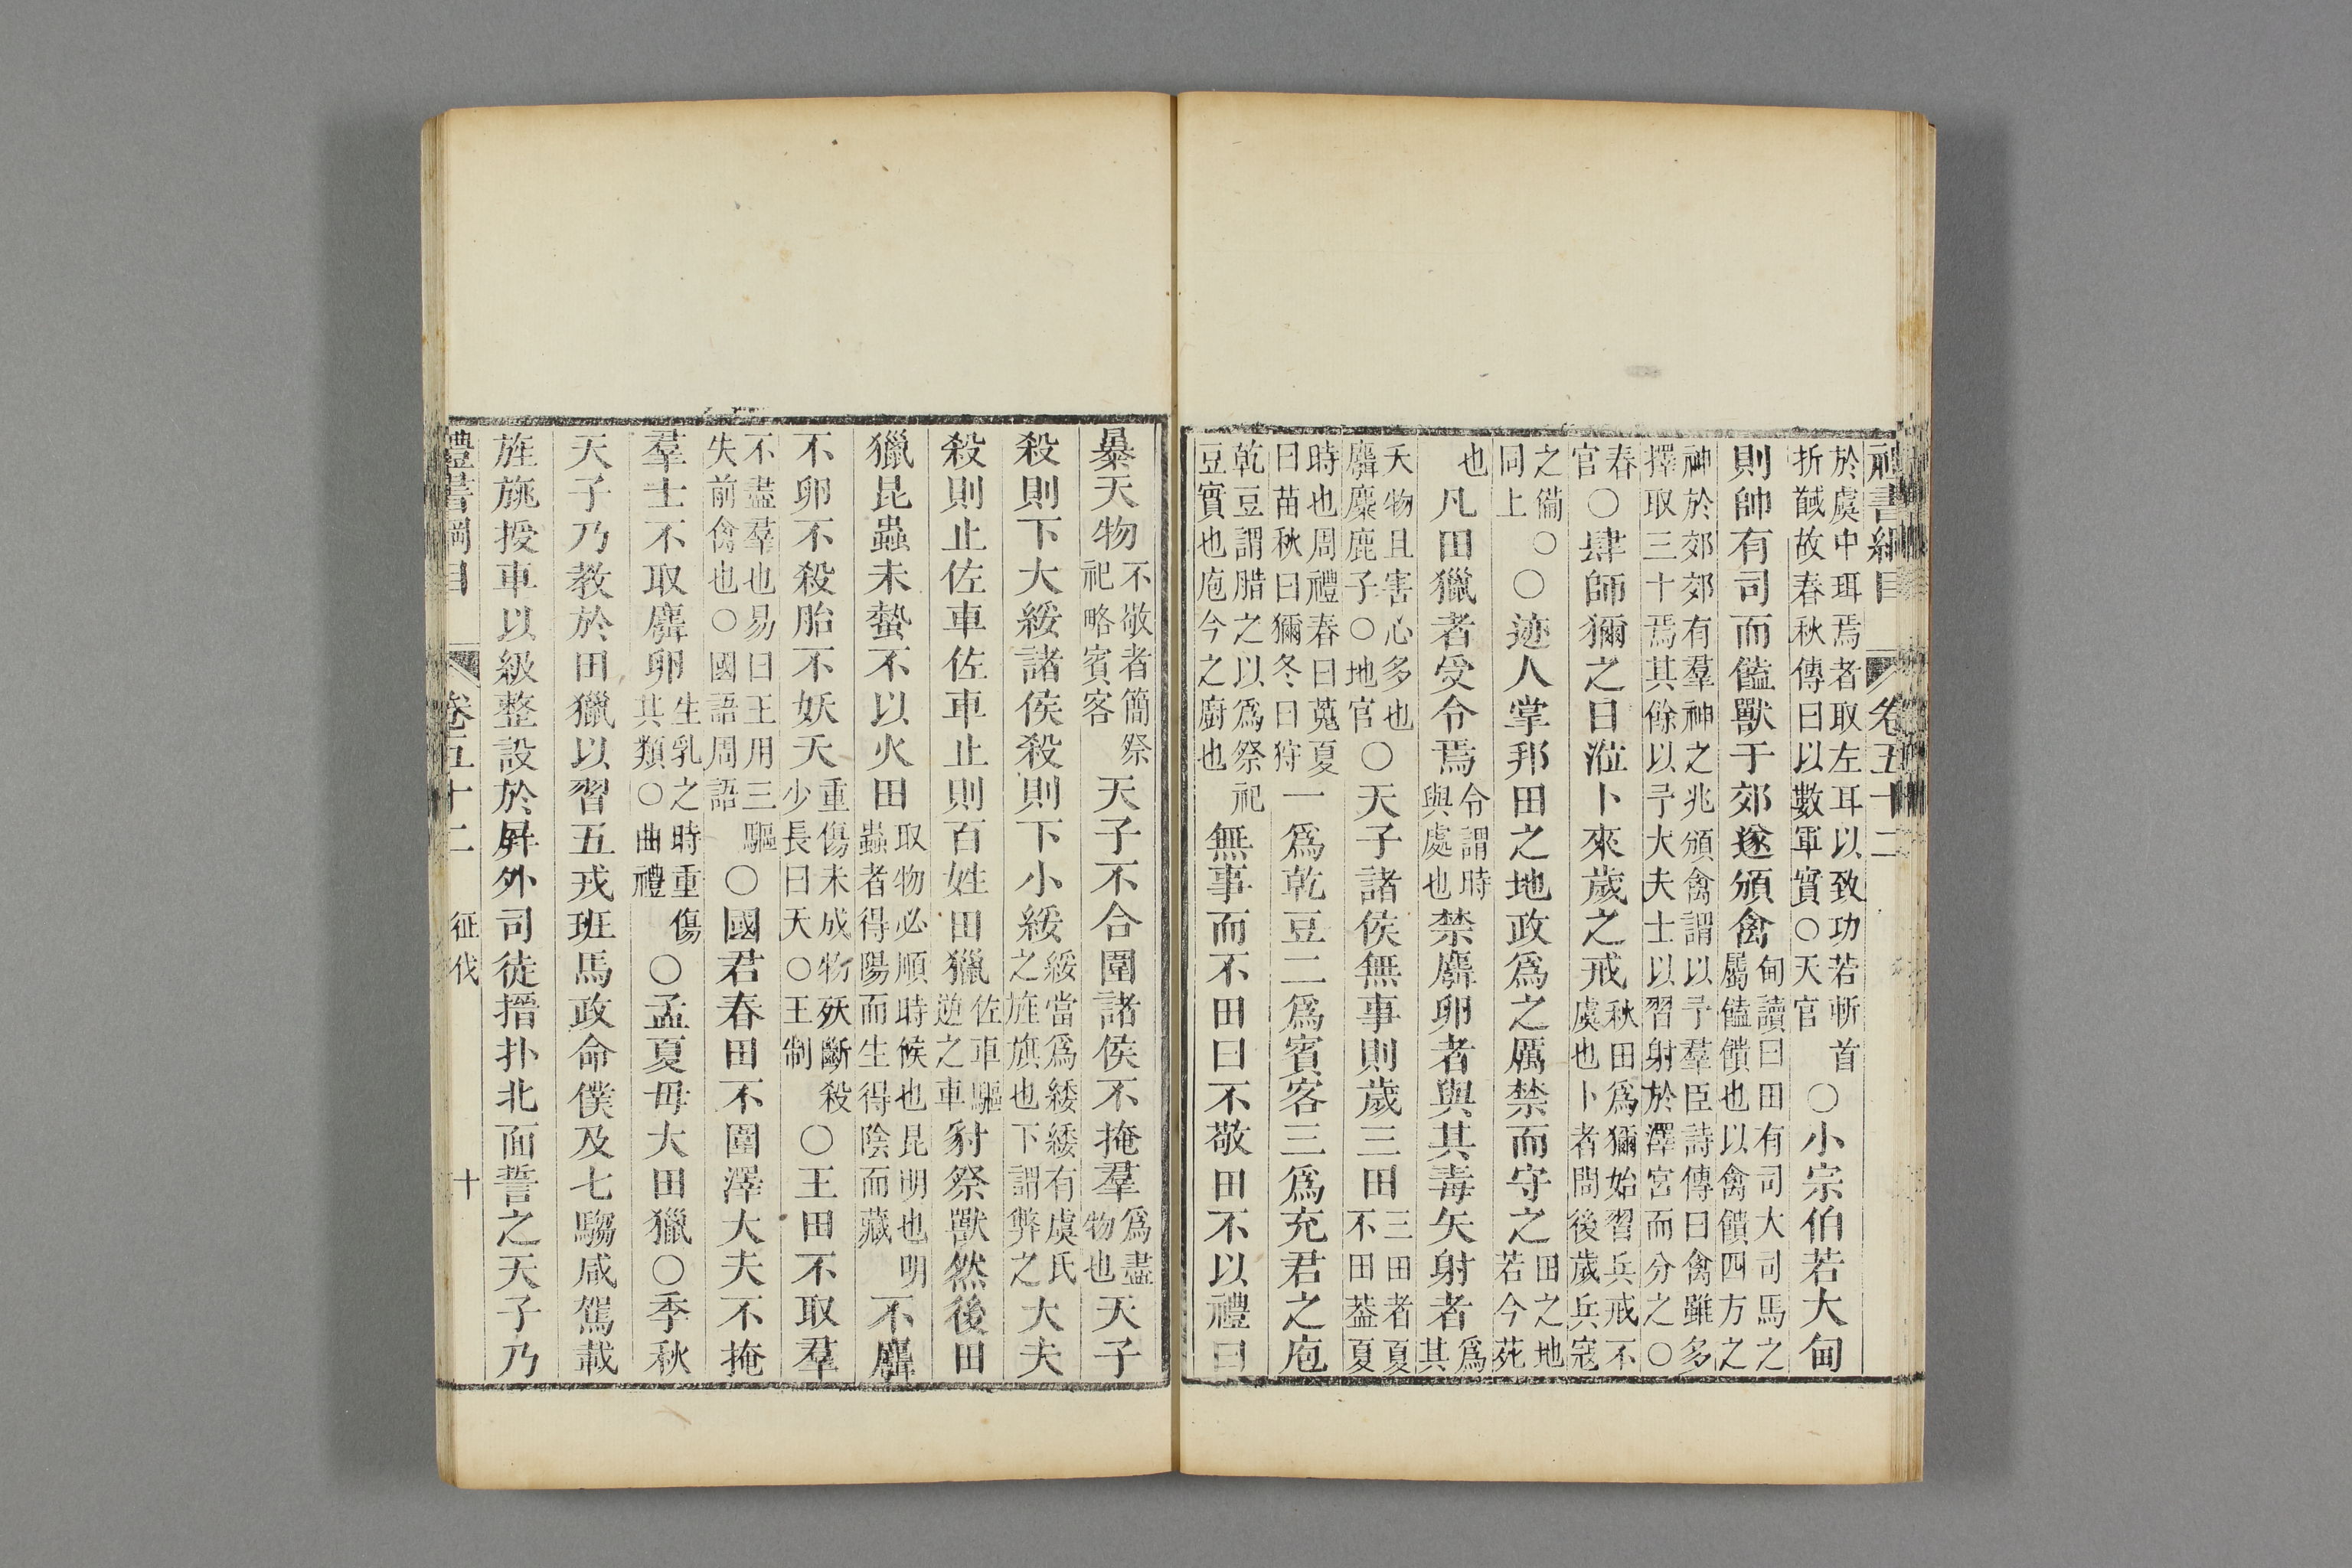 禮書綱目 卷五十二
於虞中珥焉者取左耳以致功若斬首折馘故春秋傳曰以數軍實○天官○小宗伯若大甸
則帥有司而饁獸于郊遂頒禽甸讀曰田有司大司馬之屬饁饋也以禽饋四方之
神於郊郊有羣神之兆頒禽謂以予羣臣詩傳曰禽雖多擇取三十焉其餘以予大夫士以習射於澤宮而分之○
春官○肆師獮之日涖卜來歲之戒秋田爲獮始習兵戒不虞也卜者問後歲兵寇
之備○同上○迹人掌邦田之地政爲之厲禁而守之田之地若今苑
也凡田獵者受令焉令謂時與處也禁麛卵者與其毒矢射者爲其
夭物且害心多也麛麋鹿子○地官○天子諸侯無事則歲三田三田者夏不田葢夏
時也周禮春曰蒐夏曰苗秋曰獮冬曰狩一爲乾豆二爲賓客三爲充君之庖
乾豆謂腊之以爲祭祀豆實也庖今之廚也無事而不田曰不敬田不以禮曰
暴天物不敬者簡祭祀略賓客天子不合圍諸侯不掩羣爲盡物也天子
殺則下大綏諸侯殺則下小綏綏當爲緌緌有虞氏之旌旗也下謂弊之大夫
殺則止佐車佐車止則百姓田獵佐車驅逆之車豺祭獸然後田
獵昆蟲未蟄不以火田取物必順時候也昆明也明蟲者得陽而生得陰而藏不麛
不卵不殺胎不殀夭重傷未成物殀斷殺少長曰夭○王制○王田不取羣
不盡羣也易曰王用三驅失前禽也○國語周語○國君春田不圍澤大夫不掩
羣士不取麛卵生乳之時重傷其類○曲禮○孟夏毋大田獵○季秋
天子乃教於田獵以習五戎班馬政命僕及七騶咸駕載
旌旐授車以級整設於屛外司徒搢扑北面誓之天子乃
禮書綱目 卷五十二 征伐 十